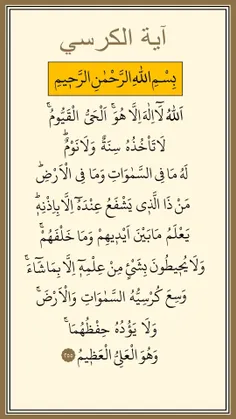 آية الكرسي
بِسْمِ اللهِ الرَّحْمٰنِ الرَّحِيمِ
اَللهُ لَٓا اِلٰهَ اِلَّا هُوَۚ اَلْحَىُّ الْقَيُّومُۚ
لَا تَأْخُذُهُ سِنَةٌ وَلَا نَوْمٌۜ
لَهُ مَا فِى السَّمٰوَاتِ وَمَا فِى الْاَرْضِۜ
مَنْ ذَا الَّذٖى يَشْفَعُ عِنْدَهُٓ اِلَّا بِاِذْنِهٖۜ
يَعْلَمُ مَا بَيْنَ اَيْدٖيهِمْ وَمَا خَلْفَهُمْۚ
وَلَا يُحٖيطُونَ بِشَىْءٍ مِنْ عِلْمِهٖٓ اِلَّا بِمَا شَٓاءَۚ
وَسِعَ كُرْسِيُّهُ السَّمٰوَاتِ وَالْاَرْضَۚ
وَلَا يَؤُدُهُ حِفْظُهُمَاۚ
وَهُوَ الْعَلِىُّ الْعَظٖيمُ ٢٥٥